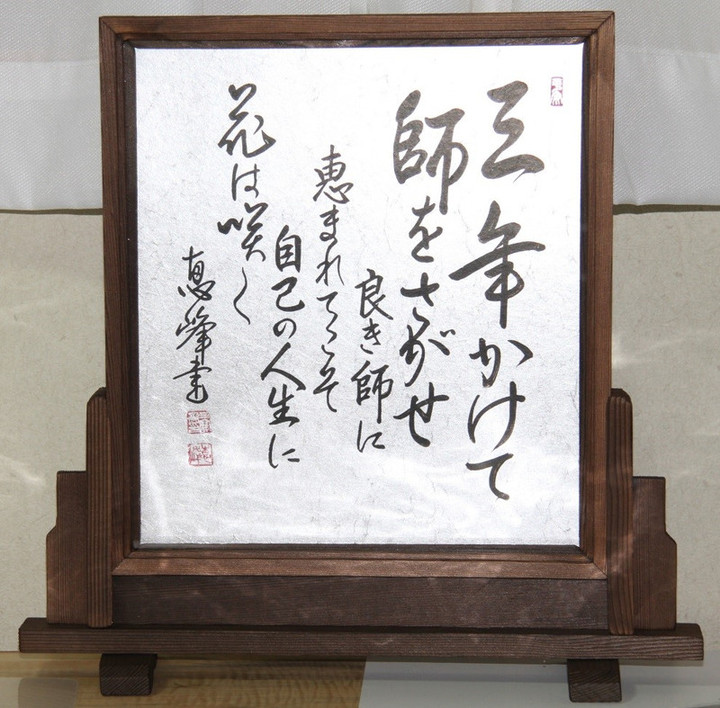 三年かけて
師をさがせ
良き師に
恵まれてこそ
自己の人生に
花は咲く
恵峰書